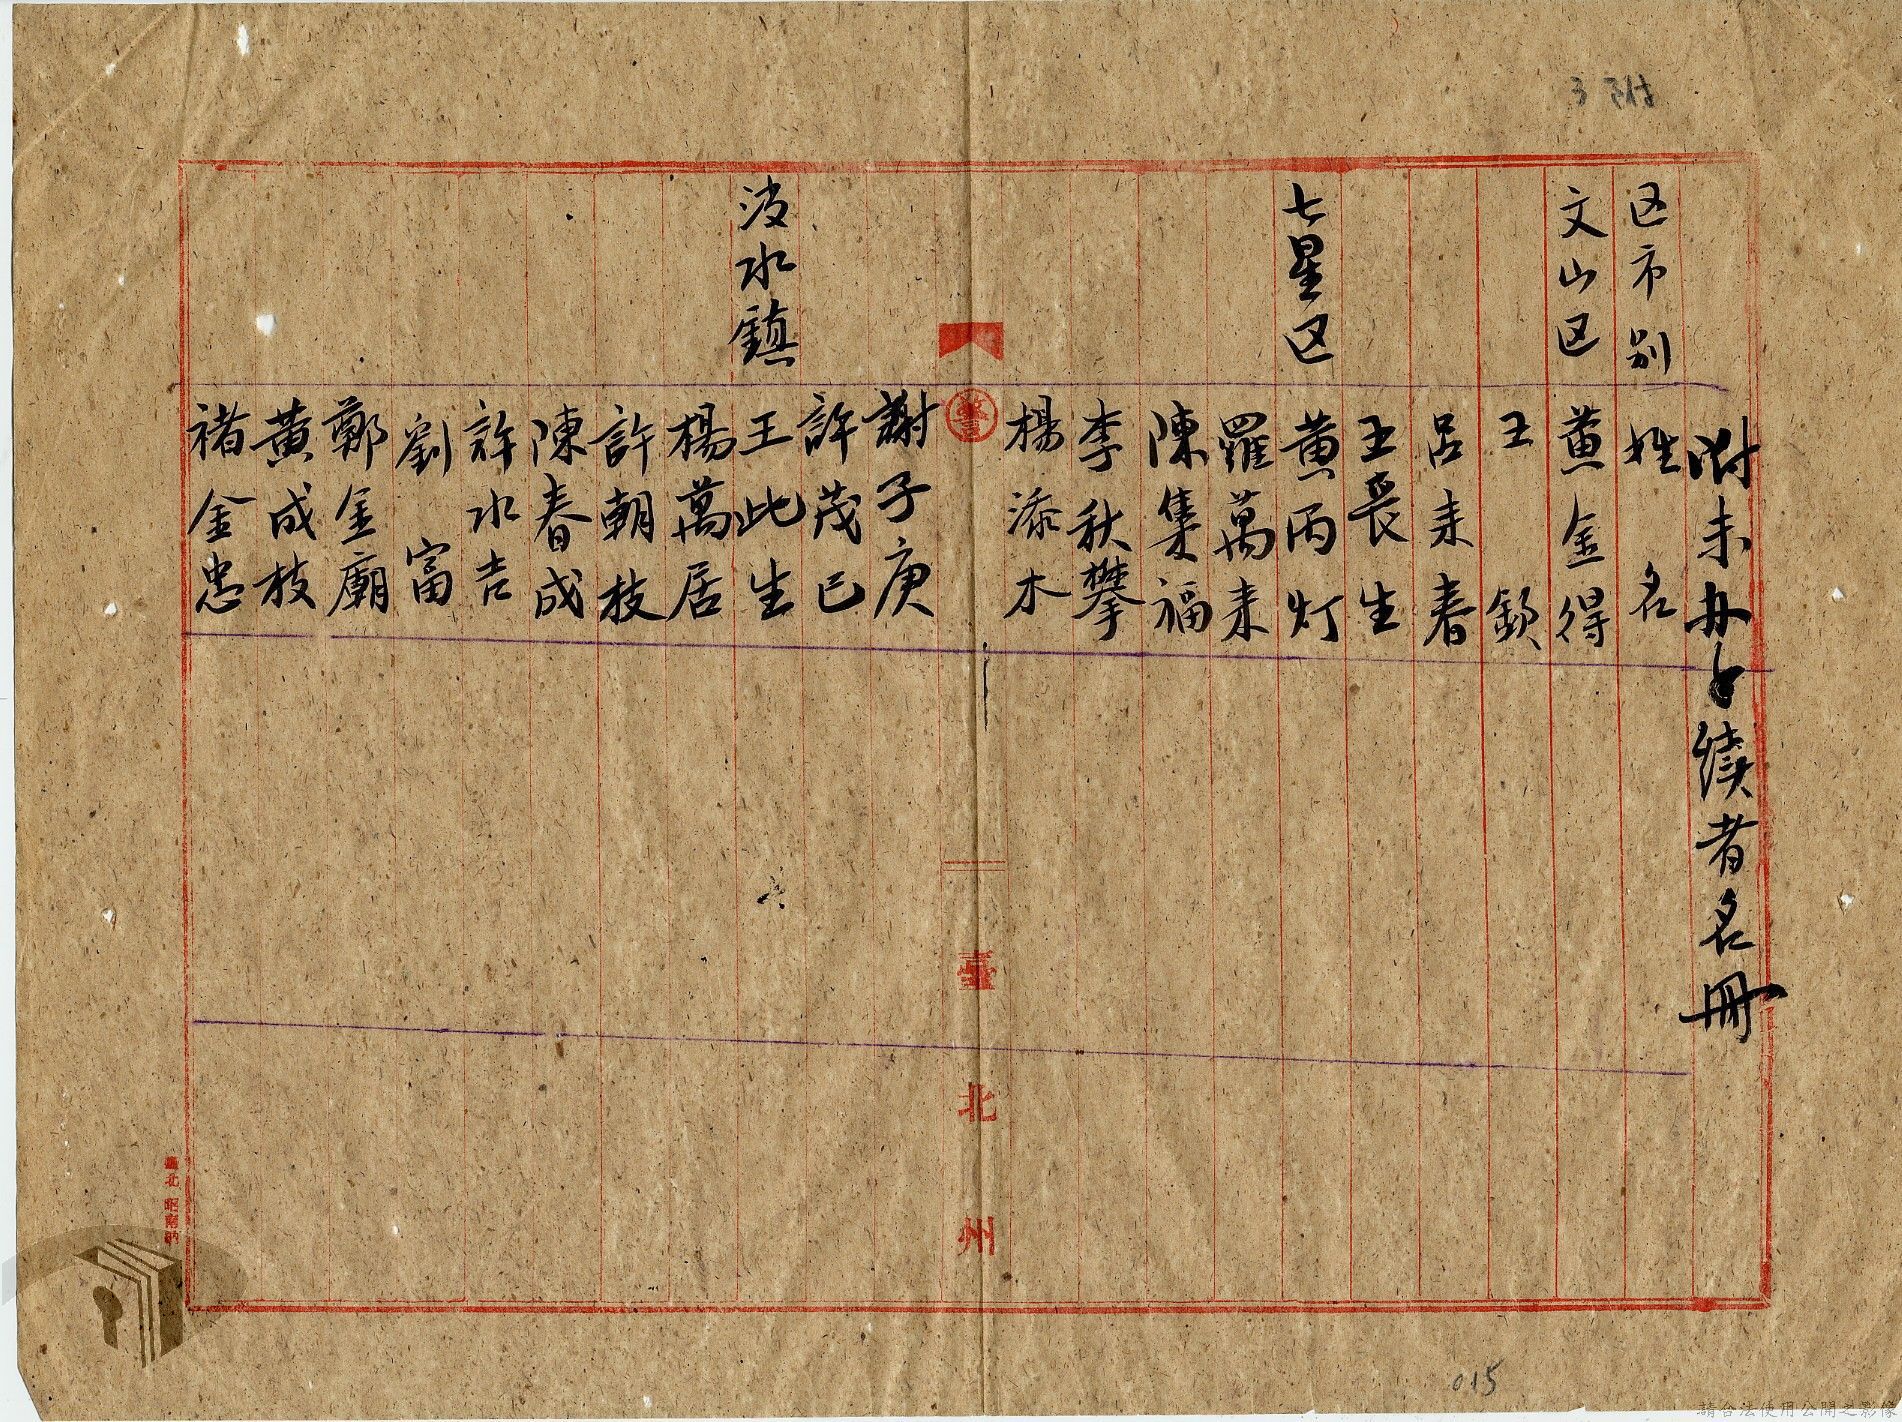 附未办手續者名冊
区市別 姓名
文山区 黄金得
王欽
呂来春
王長生
七星区 黄丙灯
羅萬来
陳集福
李秋攀
楊添木
警
臺北州
謝子庚
許茂已
淡水鎮 王此生
楊萬居
許朝枝
陳春成
許水吉
劉富
鄭金廟
黄成枝
褚金忠
臺北 昭南納
015
請合法使用公開之影像